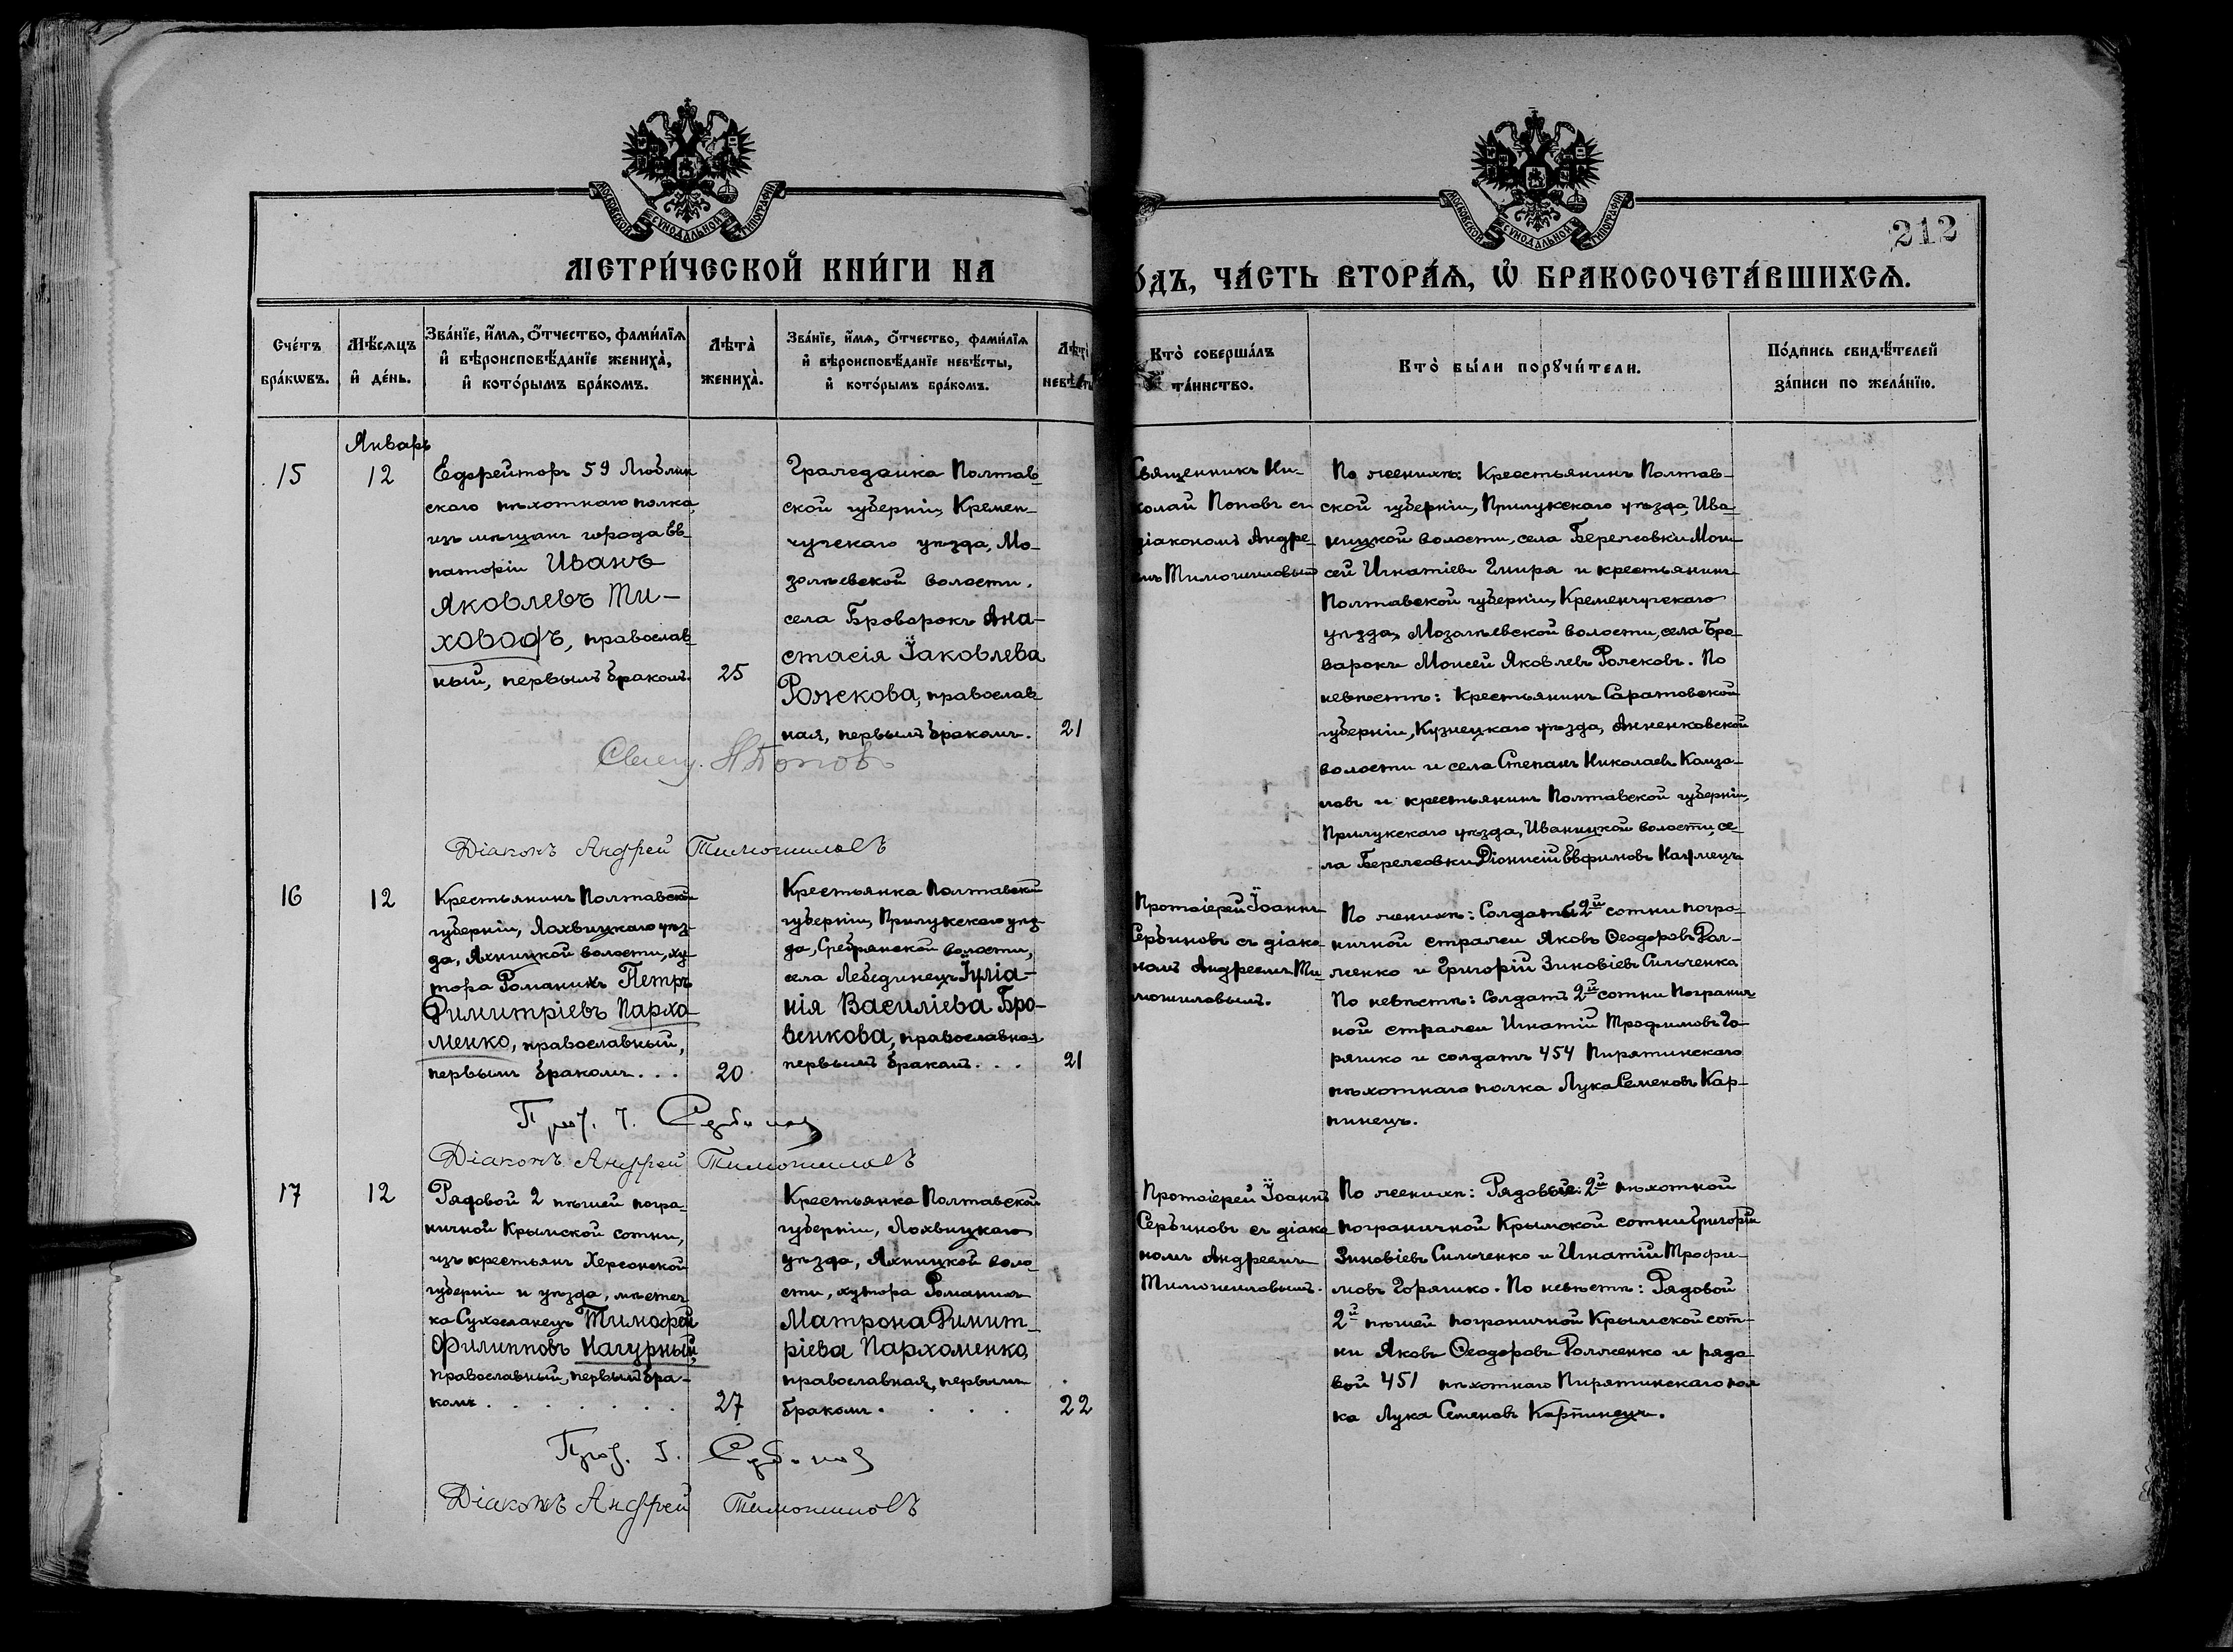 МОСКОВСКОЙ СѴНОДАЛЬНОЙ ТИПОГРАФІИ
МОСКОВСКОЙ СѴНОДАЛЬНОЙ ТИПОГРАФІИ
212
МЕТРИ́ЧЕСКОЙ КНИ́ГИ НА
О́ДЪ, ЧА́СТЬ ВТОРА́Ѧ, Ѡ҆ БРАКОСОЧЕТА́ВШИХСѦ.
Сче́тъ бра́кѡвъ.
Мѣ́сяцъ и҆ де́нь.
Зва́нїе, и҆́мѧ, ѻ҆́тчество, фами́лїѧ
и҆ вѣроисповѣ́данїе жениха̀,
и҆ кото́рымъ бра́комъ.
Лѣта̀ жениха̀.
Зва́нїе, и҆́мѧ, ѻ҆́тчество, фами́лїѧ
и҆ вѣроисповѣ́данїе невѣ́сты,
и҆ кото́рымъ бра́комъ.
Лѣта̀ невѣ́сты
Кто̀ соверша́лъ
та́инство.
Кто̀ бы́ли порꙋчи́тели.
По́дпись свидѣ́телей
за́писи по жела́нїю.
Январь
15
12
Ефрейторъ 59 Люблин
скаго пѣхотнаго полка,
изъ мѣщанъ города Ев-
паторіи Иванъ
Яковлевъ Ти-
ховодъ, православ
ный, первымъ бракомъ.
25
Гражданка Полтав
ской губерніи, Кремен-
чугскаго уѣзда, Мо-
золѣевской волости,
села Броварокъ Ана-
стасія Іаковлева
Рожкова, православ
ная, первымъ бракомъ.
21
Священникъ Ни-
колай Поповъ съ
діакономъ Андре-
емъ Тимошиловымъ
По женихѣ: Крестьянинъ Полтав-
ской губерніи, Прилукскаго уѣзда, Ива-
ницкой волости, села Бережовки Мои-
сей Игнатіевъ Гмиря и крестьянинъ
Полтавской губерніи, Кременчугскаго
уѣзда, Мозолѣевской волости, села Бро-
варокъ Моисей Яковлевъ Рожковъ. По
невѣстѣ: Крестьянинъ Саратовской
губерніи, Кузнецкаго уѣзда, Анненковской
волости и села Степанъ Николаевъ Камзо-
ловъ и крестьянинъ Полтавской губерніи,
Прилукскаго уѣзда, Иваницкой волости, се-
ла Бережовки Діонисій Евфимовъ
Свящ. Н Поповъ
Діаконъ Андрей Тимошиловъ
16
12
Крестьянинъ Полтавской
губерніи, Лохвицкаго уѣз-
да, Яхницкой волости, ху-
тора Романихъ Петръ
Димитріевъ Пархо
менко, православный,
первымъ бракомъ...
20
Крестьянка Полтавской
губерніи, Прилукскаго уѣз-
да, Сребрянской волости,
села Лебединецъ Іуліа-
нія Василіева Бро-
венкова, православная
первымъ бракомъ...
21
Протоіерей Іоаннъ
Сербиновъ съ діако-
номъ Андреемъ Ти-
мошиловымъ.
По женихѣ: Солдаты 2й сотни погра-
ничной стражи Яковъ Ѳеодоровъ Рол-
женко и Григорій Зиновіевъ Сильченко
По невѣстѣ: Солдатъ 2й сотни Погранич
ной стражи Игнатій Трофимовъ Го-
ряшко и солдатъ 454 Пирятинскаго
пѣхотнаго полка Лука Семеновъ Кар-
пинецъ.
Прот. І. Сербиновъ
Діаконъ Андрей Тимошиловъ
17
12
Рядовой 2 пѣшей погра-
ничной Крымской сотни,
изъ крестьянъ Херсонской
губерніи и уѣзда, мѣстеч
ка Сухоеланецъ Тимофей
Филипповъ Нагурный,
православный, первымъ бра-
комъ.......
27
Крестьянка Полтавской
губерніи, Лохвицкаго
уѣзда, Яхницкой воло-
сти, хутора Романихъ
Матрона Димит-
ріева Пархоменко,
православная, первымъ
бракомъ....
22
Протоіерей Іоаннъ
Сербиновъ съ діако
номъ Андреемъ
Тимошиловымъ.
По женихѣ: Рядовые: 2й пѣхотной
пограничной Крымской сотни Григорій
Зиновіевъ Сильченко и Игнатій Трофи-
мовъ Горяшко. По невѣстѣ: Рядовой
2й пѣшей пограничной Крымской сот-
ни Яковъ Ѳеодоровъ Ролженко и рядо
вой 451 пѣхотнаго Пирятинскаго пол
ка Лука Семеновъ Карпинецъ.
Прот. І. Сербиновъ
Діаконъ Андрей Тимошиловъ